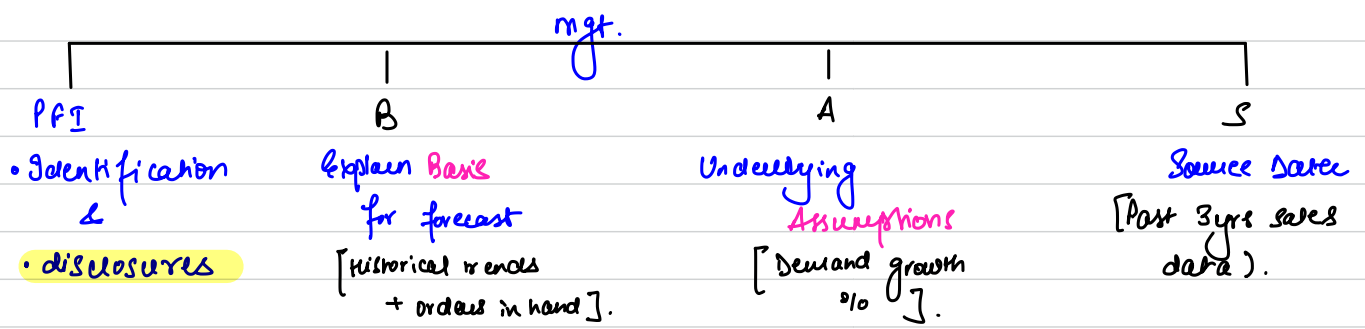 mgt.
PFI B A S
• Identification
&
• disclosures
Explain Basis
for forecast
[Historical trends
+ orders in hand].
Underlying
Assumptions
[Demand growth
%].
Source Data
[Past 3yrs sales
data).